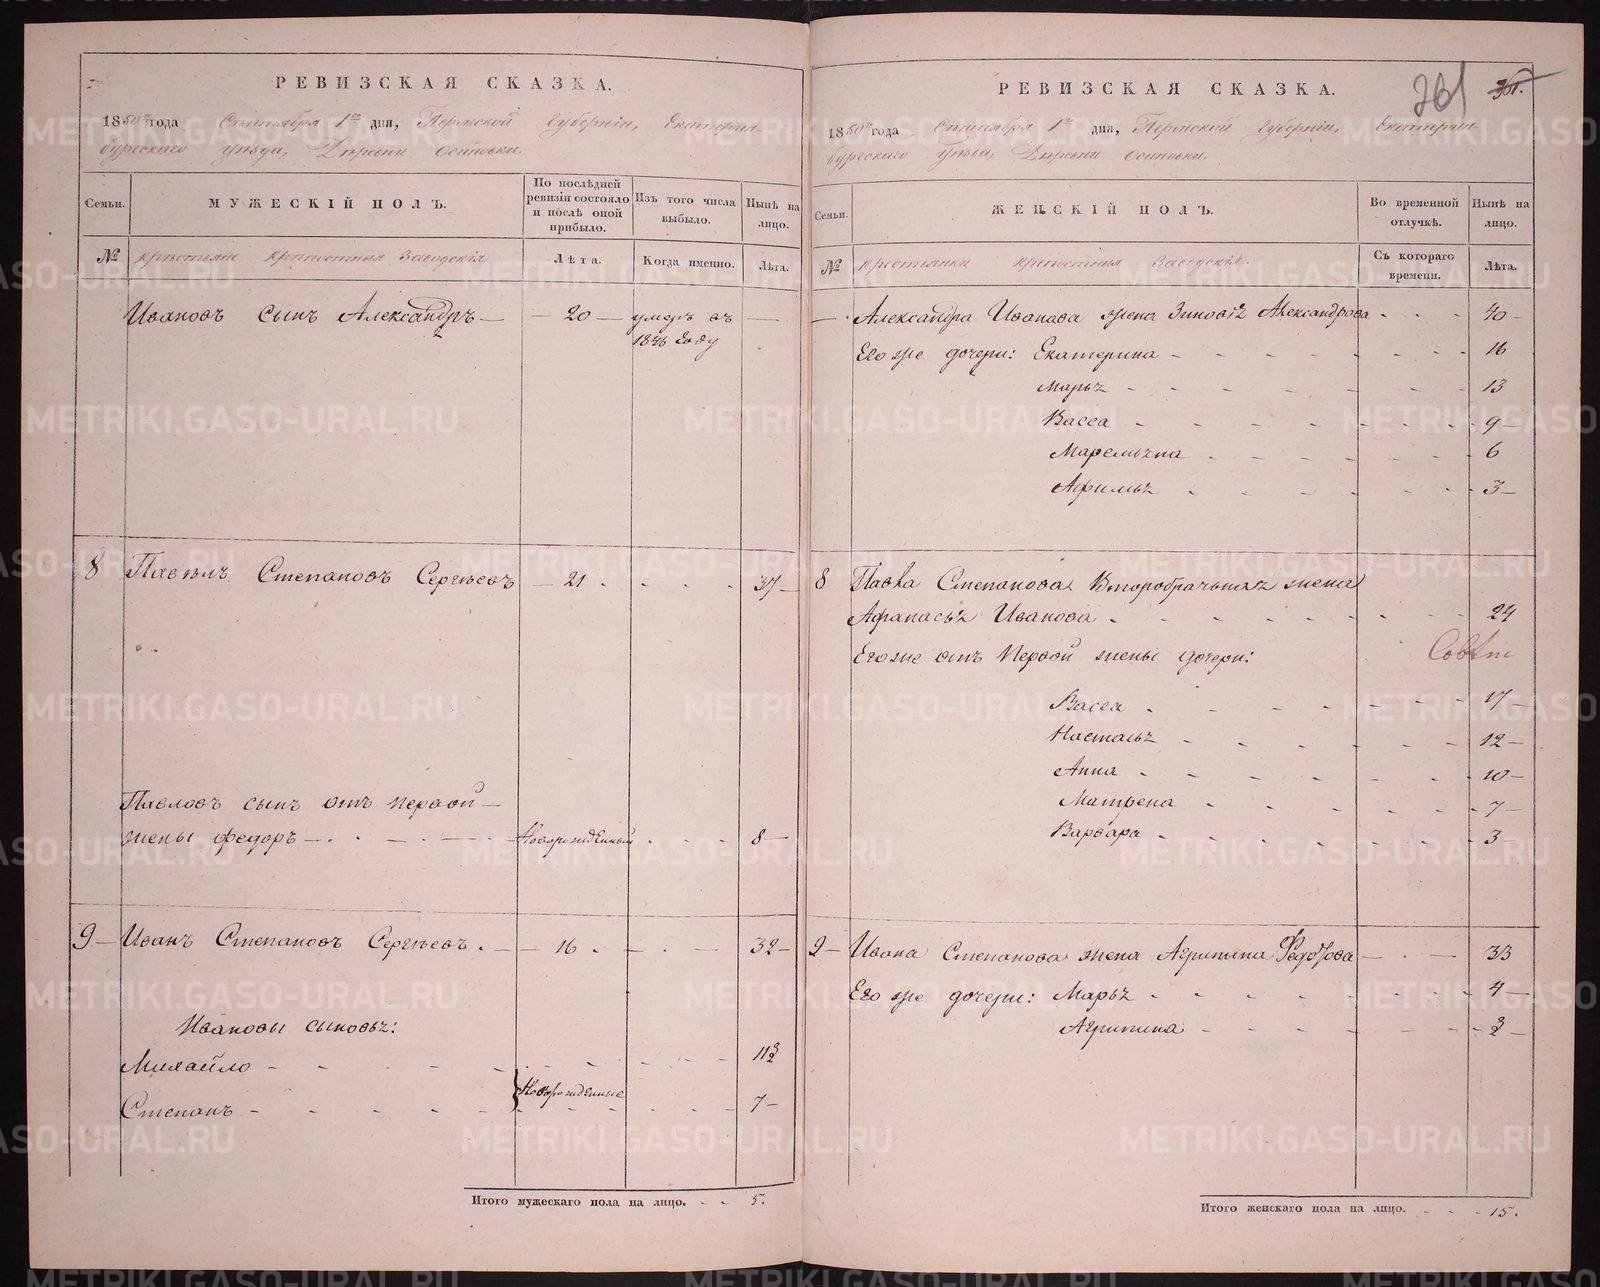 РЕВИЗСКАЯ СКАЗКА.
1850 года Сентября 1го дня, Пермской Губернии, Екатерин-
бургскаго уезда, Деревни Осиновки.
Семьи.
МУЖЕСКІЙ ПОЛЪ.
По послѣдней ревизіи состояло и послѣ оной прибыло.
Изъ того числа выбыло.
Нынѣ на лицо.
№
крестьяне крепостныя Заводскія
Лѣта.
Когда именно.
Лѣта.
Ивановъ сынъ Александръ — 20 — умеръ въ
1846 году
8 Павелъ Степановъ Сергѣевъ — 21 37
Павловъ сынъ отъ первой
жены Федоръ Новорожденный 8
9 Иванъ Степановъ Сергѣевъ 16 32
Ивановы сыновья:
Михайло
Новорожденные
Степанъ 7
Итого мужескаго пола на лицо. 5.
361
РЕВИЗСКАЯ СКАЗКА.
1850 года Сентября 1го дня, Пермской Губернии, Екатерин-
бургскаго Уезда, Деревни Осиновки.
Семьи.
ЖЕНСКІЙ ПОЛЪ.
Во временной отлучкѣ.
Нынѣ на лицо.
№
крестьянки крепостныя Заводскія.
Съ котораго времени.
Лѣта.
Александра Иванова жена Александрова 40
Его же дочери: Екатерина 16
Марья 13
Васса 9
6
3
8 Павла Степанова Второбрачная жена
Афанасья Иванова 24
Его же отъ первой жены дочери:
Васса 17
Настасья 12
Анна 10
Матрена 7
Варвара 3
9 Ивана Степанова жена Агрипина Федорова 33
Его же дочери: Марья 4
Агрипина
Итого женскаго пола на лицо. 15.
METRIKI.GASO-URAL.RU